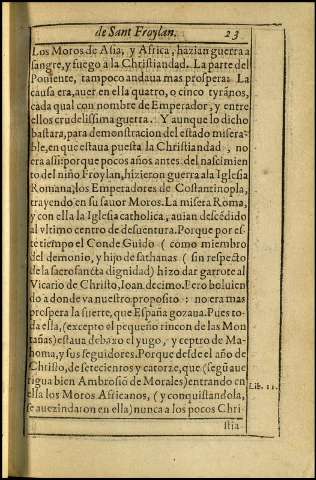 de Sant Froylan. 23
Los Moros de Asia, y Africa, hazian guerra a
sangre, y fuego à la Christiandad. La parte del
Poniente, tampoco andaua mas prospera: La
causa era, auer en ella quatro, o cinco tyranos,
cada qual con nombre de Emperador, y entre
ellos crudelissima guerra. Y aunque lo dicho
bastara, para demonstracion del estado misera-
ble, en que estaua puesta la Christiandad, no
era assi: porque pocos años antes del nascimien
to del niño Froylan, hizieron guerra a la Iglesia
Romana, los Emperadores de Costantinopla,
trayendo en su fauor Moros. La misera Roma,
y con ella la Iglesia catholica, auian descēdido
al vltimo centro de desuentura. Porque por es-
te tiempo el Conde Guido (como miembro
del demonio, y hijo de sathanas (sin respecto
de la sacrosancta dignidad) hizo dar garrote al
Vicario de Christo, Ioan, decimo. Pero boluien
do a donde va nuestro proposito: no era mas
prospera la suerte, que España gozaua. Pues to
da esta, (excepto el pequeño rincon de las Mon
tañas) estaua debaxo el yugo, y ceptro de Ma-
homa, y sus seguidores. Porque desde el año de
Christo, de setecientos y catorze, que (segū aue
rigua bien Ambrosio de Morales) entrando en
ella los Moros Affricanos, (y conquistandola,
se auezindaron en ella) nunca a los pocos Chri-
stia-
Lib. 12.